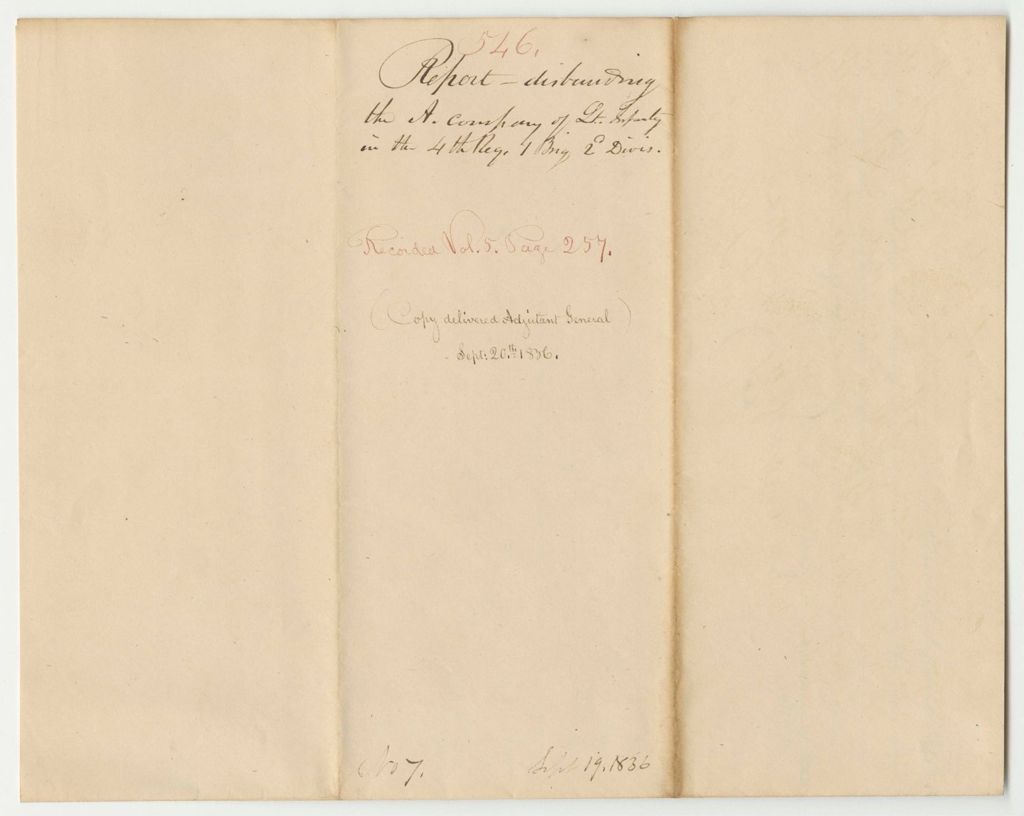 546.
Report – disbanding
the A. company of Lt. Infantry
in the 4th Reg. 1 Brig 2d Divis.
Recorded Vol. 5. Page 257.
(Copy delivered Adjutant General)
Sept: 20.th 1836.
No 7.
Sept 19. 1836